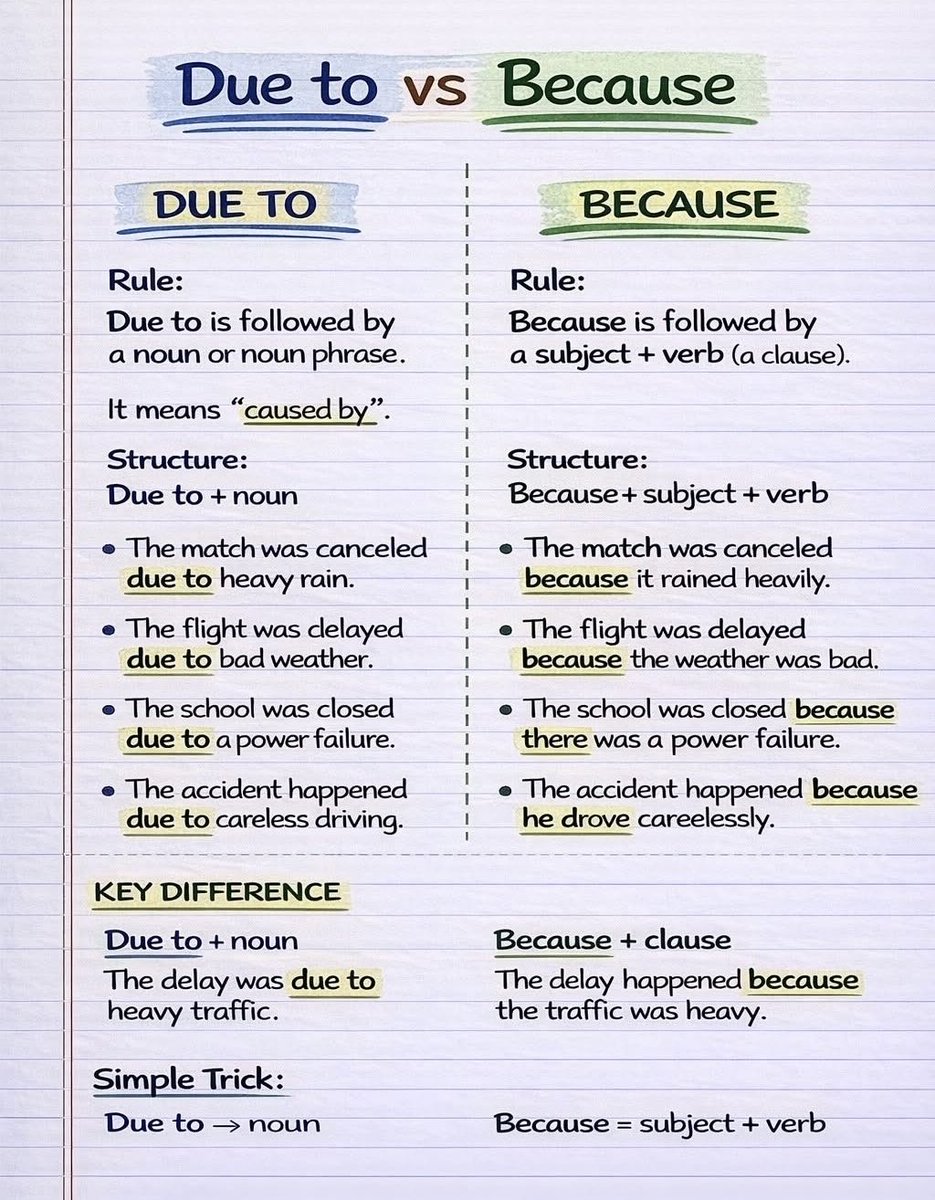 Due to vs Because
DUE TO
Rule:
Due to is followed by
a noun or noun phrase.
It means “caused by”.
Structure:
Due to + noun
• The match was canceled
due to heavy rain.
• The flight was delayed
due to bad weather.
• The school was closed
due to a power failure.
• The accident happened
due to careless driving.
BECAUSE
Rule:
Because is followed by
a subject + verb (a clause).
Structure:
Because + subject + verb
• The match was canceled
because it rained heavily.
• The flight was delayed
because the weather was bad.
• The school was closed because
there was a power failure.
• The accident happened because
he drove careelessly.
KEY DIFFERENCE
Due to + noun
The delay was due to
heavy traffic.
Because + clause
The delay happened because
the traffic was heavy.
Simple Trick:
Due to → noun
Because = subject + verb